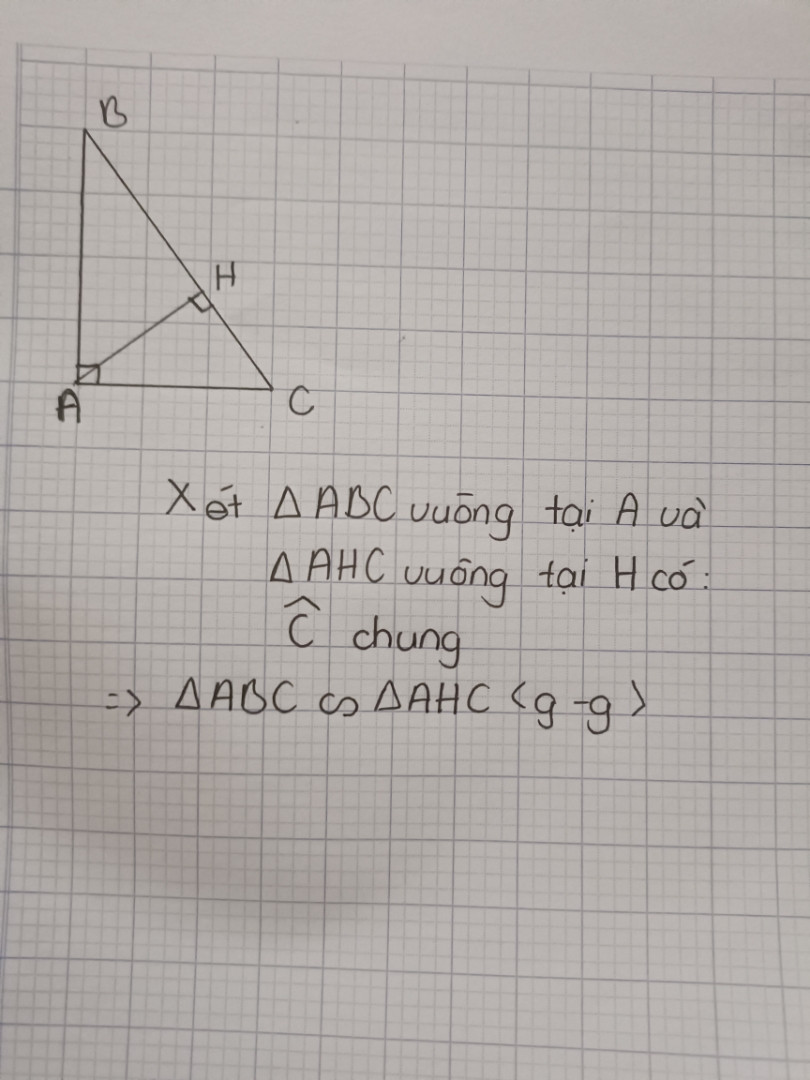 B
H
A
C
Xét ΔABC vuông tại A và
ΔAHC vuông tại H có:
Ĉ chung
=> ΔABC ∽ ΔAHC <g-g>